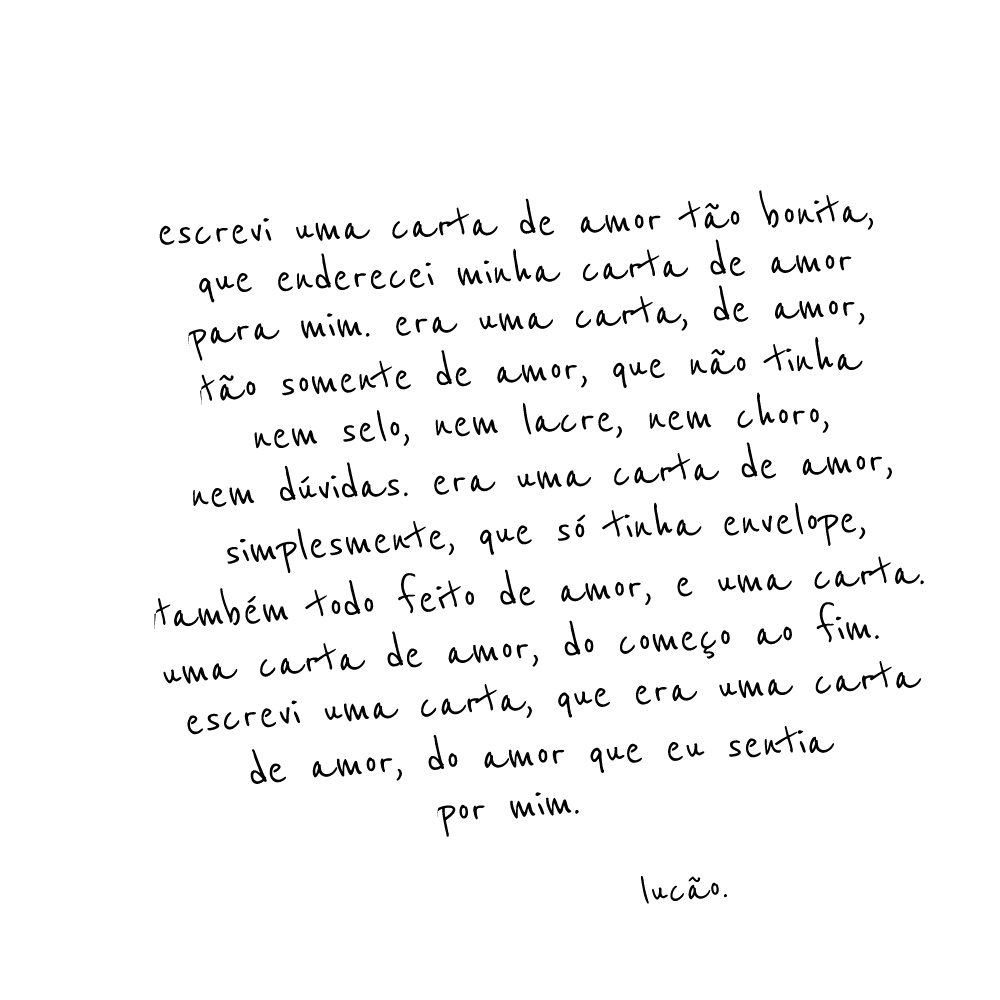 escrevi uma carta de amor tão bonita,
que enderecei minha carta de amor
para mim. era uma carta, de amor,
tão somente de amor, que não tinha
nem selo, nem lacre, nem choro,
nem dúvidas. era uma carta de amor,
simplesmente, que só tinha envelope,
também todo feito de amor, e uma carta.
uma carta de amor, do começo ao fim.
escrevi uma carta, que era uma carta
de amor, do amor que eu sentia
por mim.
lucão.